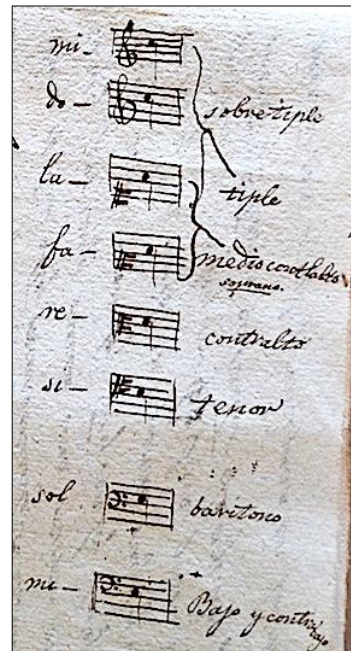 mi-
do- sobretiple
la- tiple
fa- mediocontralto
soprano.
re- contralto
si- tenor
sol baritono
mi- Bajo y contrabajo